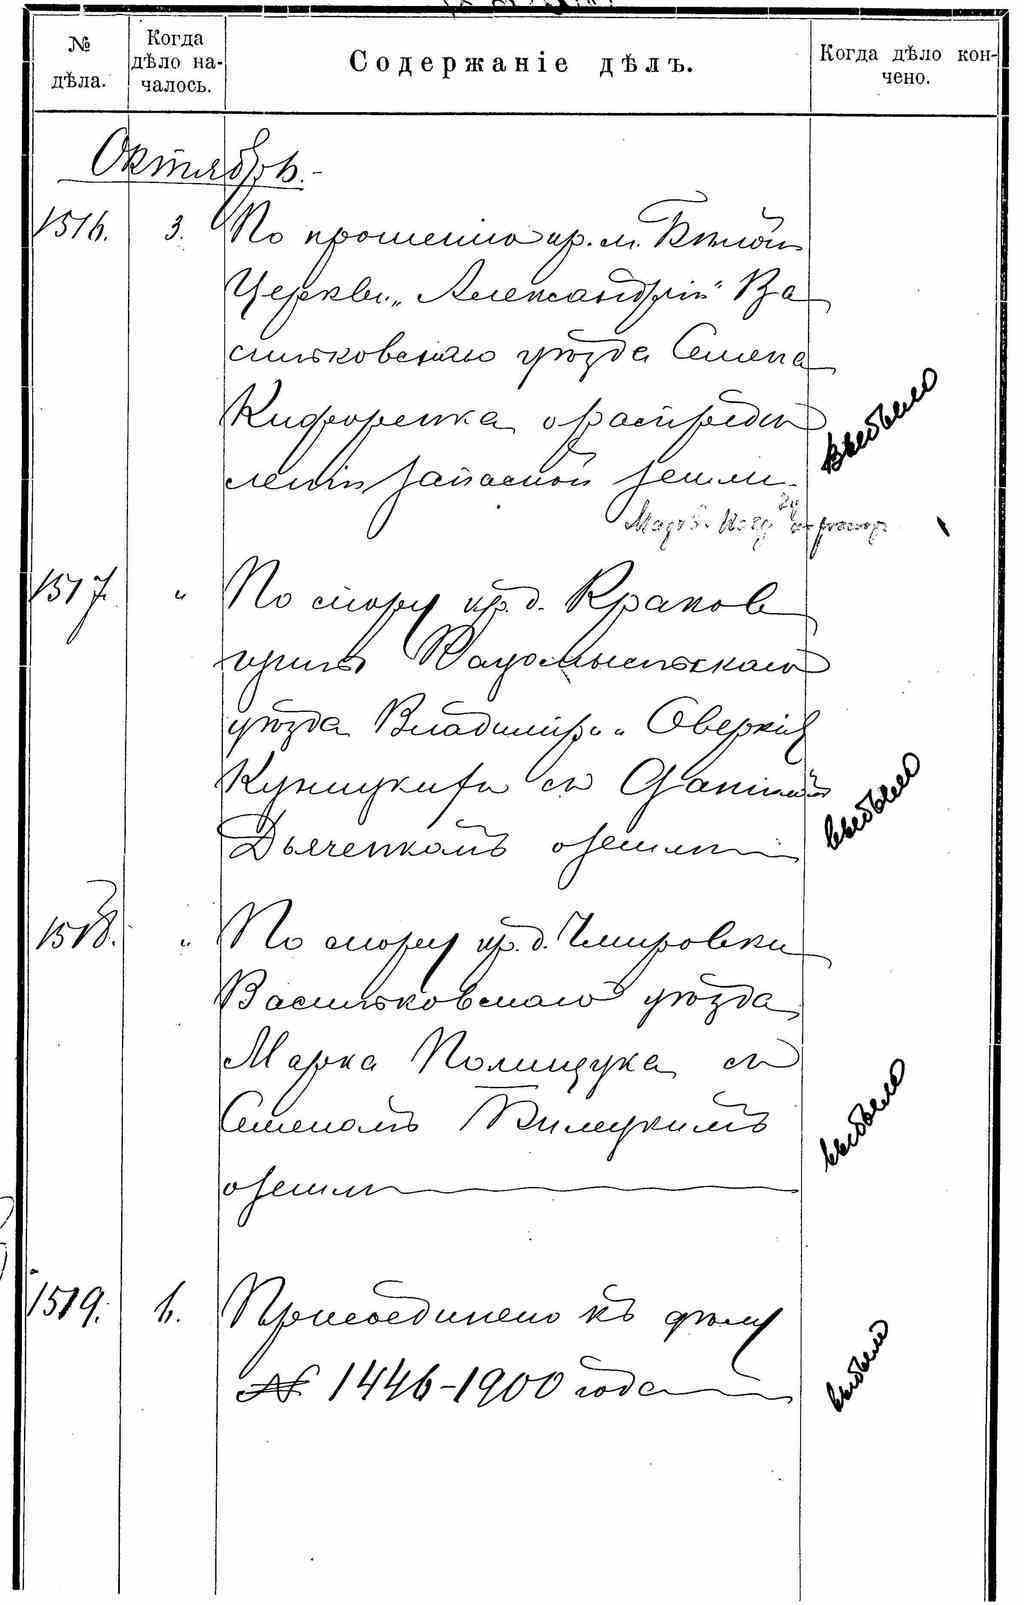 № дѣла.
Когда дѣло началось.
Содержаніе дѣлъ.
Когда дѣло кончено.
Октябрь.
1516. 3. По прошенію кр. м. Бѣлой
Церкви „Александрія" Ва
сильковскаго уѣзда Семена
Кифоренка о распредѣ
леніи запасной земли.
выбыло
1517. " По спору кр. д.
Радомысльскаго
уѣзда Владиміра и Оверкія
Куницкихъ съ
Дьяченкомъ о землѣ
выбыло
1518. " По спору кр. д. Чмировки
Васильковскаго уѣзда
Марка Полищука съ
Семеномъ Билецкимъ
о землѣ
выбыло
1519. 6. Присоединено къ дѣлу
№ 1446-1900 года
выбыло